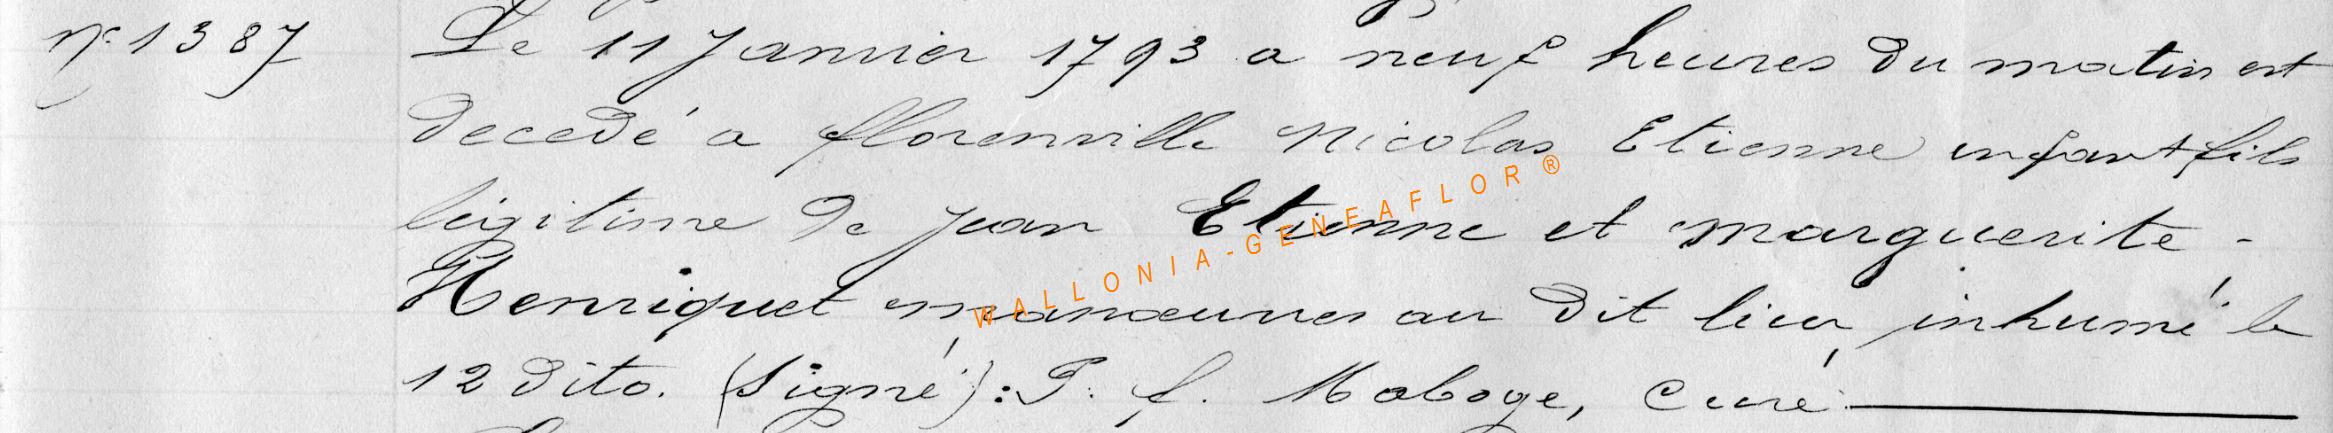 n° 1387 Le 11 Janvier 1793 a neuf heures du matin est
decedé a florenville Nicolas Etienne enfant fils
légitime de jean Etienne et marguerite -
Henriquet manœuvres au dit lieu, inhumé le
12 dito. (Signé): J. f. Maboge, Curé.
WALLONIA-GENEAFLOR®